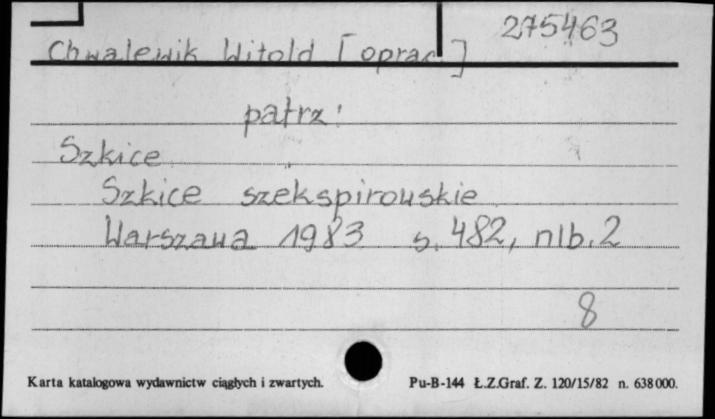 275463
Chwalewik Witold [oprac]
patrz:
Szkice
Szkice szekspirowskie
Warszawa 1983 s. 482, nlb. 2
8
Karta katalogowa wydawnictw ciągłych i zwartych. Pu-B-144 Ł.Z.Graf. Z. 120/15/82 n. 638000.